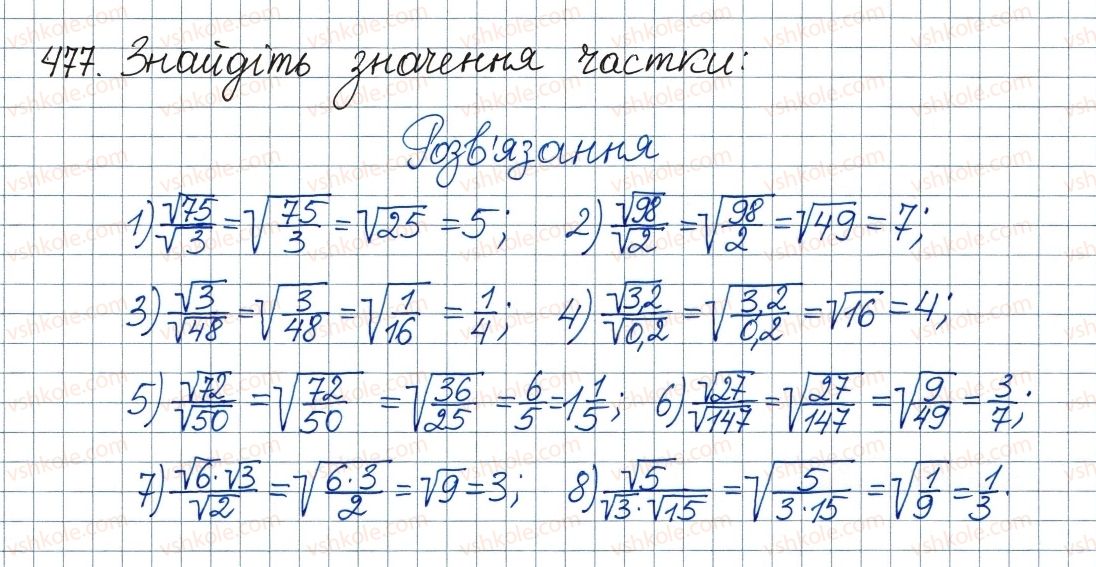 477. Знайдіть значення частки:
Розв'язання
1) √75/√3 = √(75/3) = √25 = 5; 2) √98/√2 = √(98/2) = √49 = 7;
3) √3/√48 = √(3/48) = √(1/16) = 1/4; 4) √3,2/√0,2 = √(3,2/0,2) = √16 = 4;
5) √72/√50 = √(72/50) = √(36/25) = 6/5 = 1 1/5; 6) √27/√147 = √(27/147) = √(9/49) = 3/7;
7) √6·√3/√2 = √(6·3/2) = √9 = 3; 8) √5/√3·√15 = √(5/3·15) = √(1/9) = 1/3.